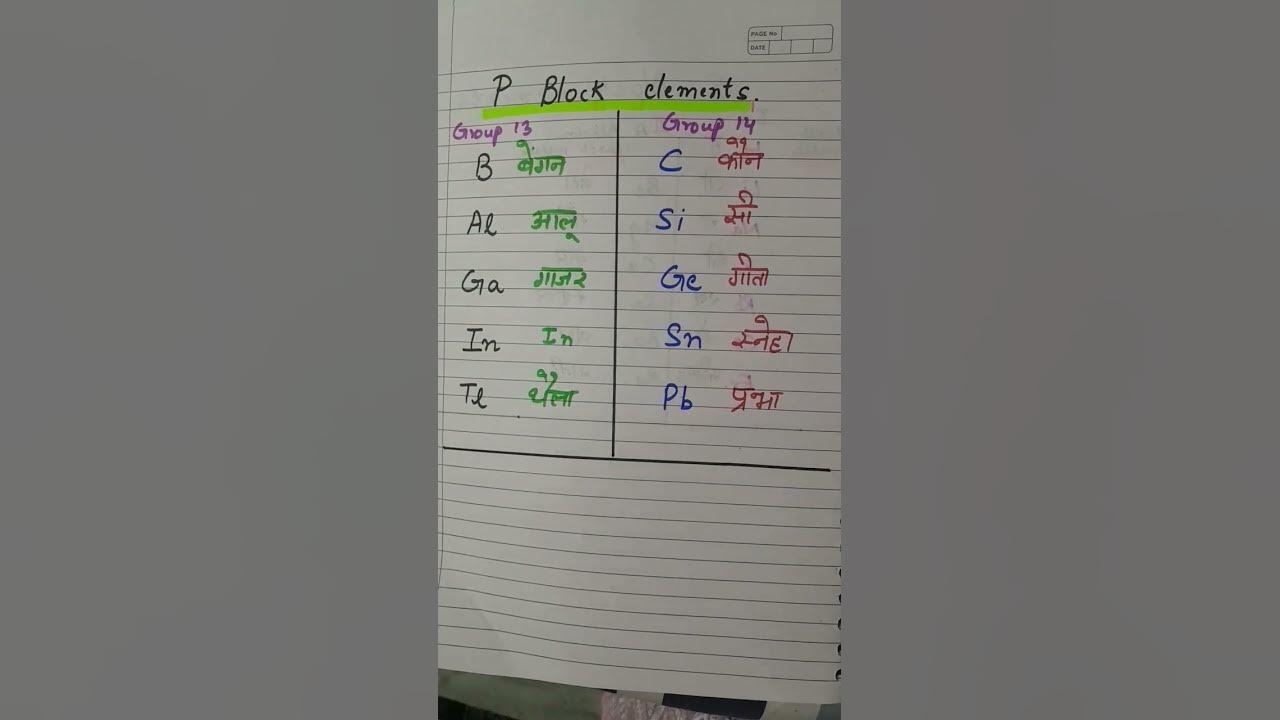 PAGE No
DATE
P Block elements.
Group 13 Group 14
B बेंगन C कौन
Al आलू Si सी
Ga गाजर Ge गीता
In In Sn स्नेहा
Tl थैला Pb प्रभा